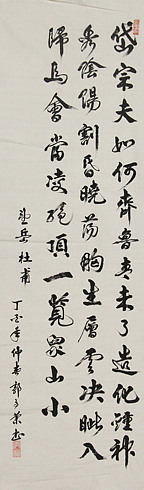 岱宗夫如何齊魯青未了造化鍾神
秀陰陽割昏曉蕩胸生層雲决眦入
歸鳥會當凌絕頂一覽眾山小
望岳杜甫
丁酉年仲春郭書